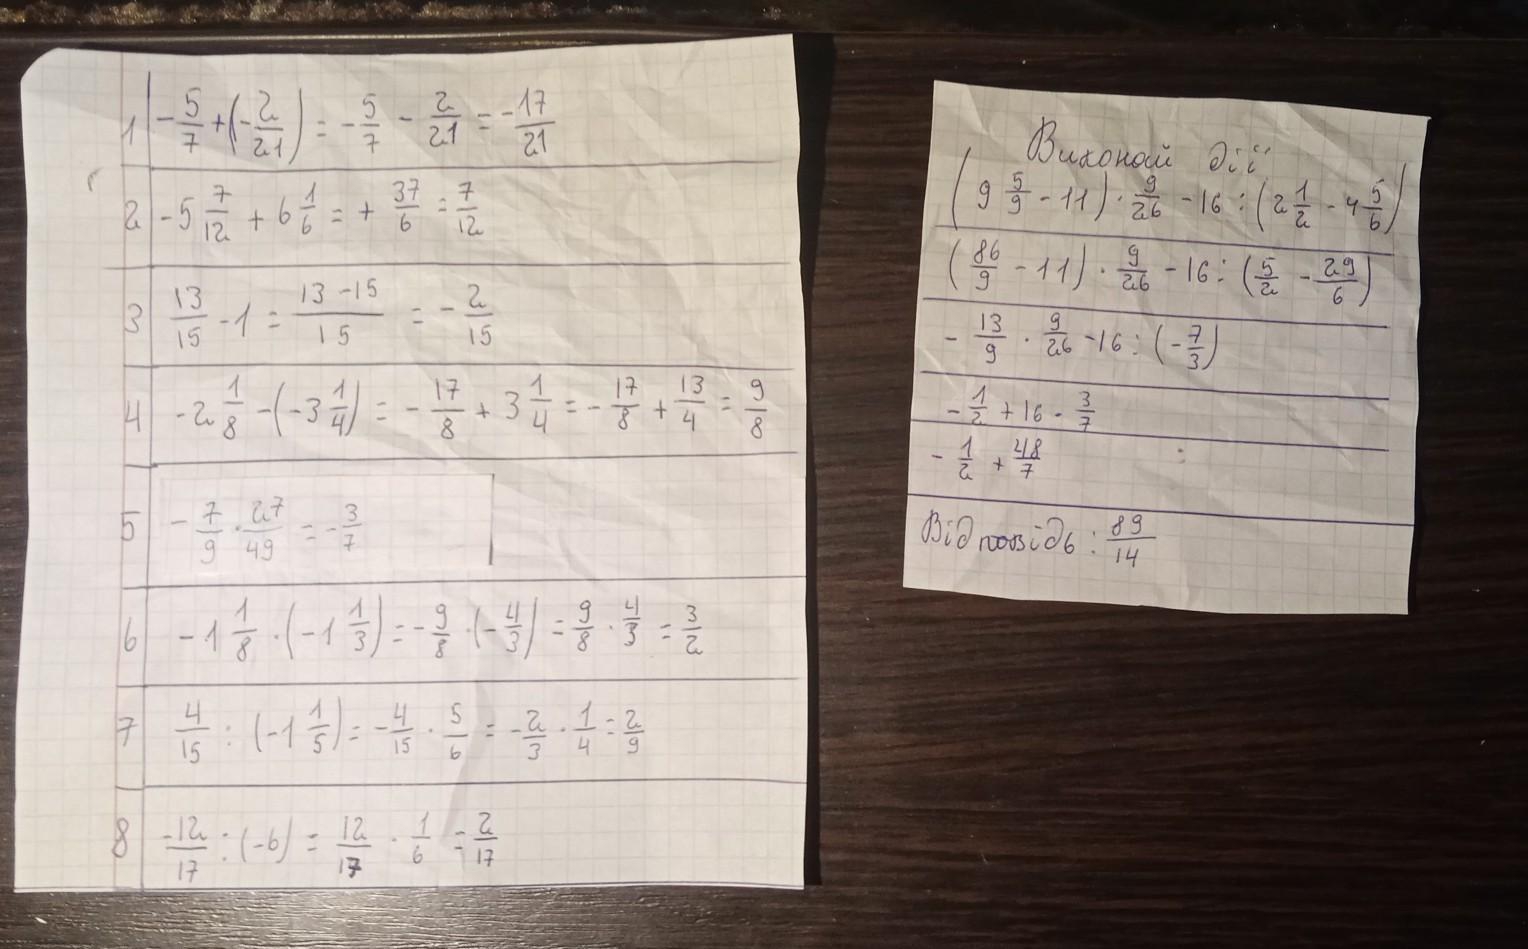 1 -5/7 + (-2/21) = -5/7 - 2/21 = -17/21
2 -5 7/12 + 6 1/6 = + 37/6 = 7/12
3 13/15 - 1 = (13 - 15)/15 = -2/15
4 -2 1/8 - (-3 1/4) = -17/8 + 3 1/4 = -17/8 + 13/4 = 9/8
5 -7/9 · 27/49 = -3/7
6 -1 1/8 · (-1 1/3) = -9/8 · (-4/3) = 9/8 · 4/3 = 3/2
7 4/15 : (-1 1/5) = -4/15 · 5/6 = -2/3 · 1/4 = 2/9
8 -12/17 : (-6) = 12/17 · 1/6 = 2/17
Виконай дії
(9 5/9 - 11) · 9/26 - 16 : (2 1/2 - 4 5/6)
(86/9 - 11) · 9/26 - 16 : (5/2 - 29/6)
-13/9 · 9/26 - 16 : (-7/3)
-1/2 + 16 · 3/7
-1/2 + 48/7
Відповідь : 89/14